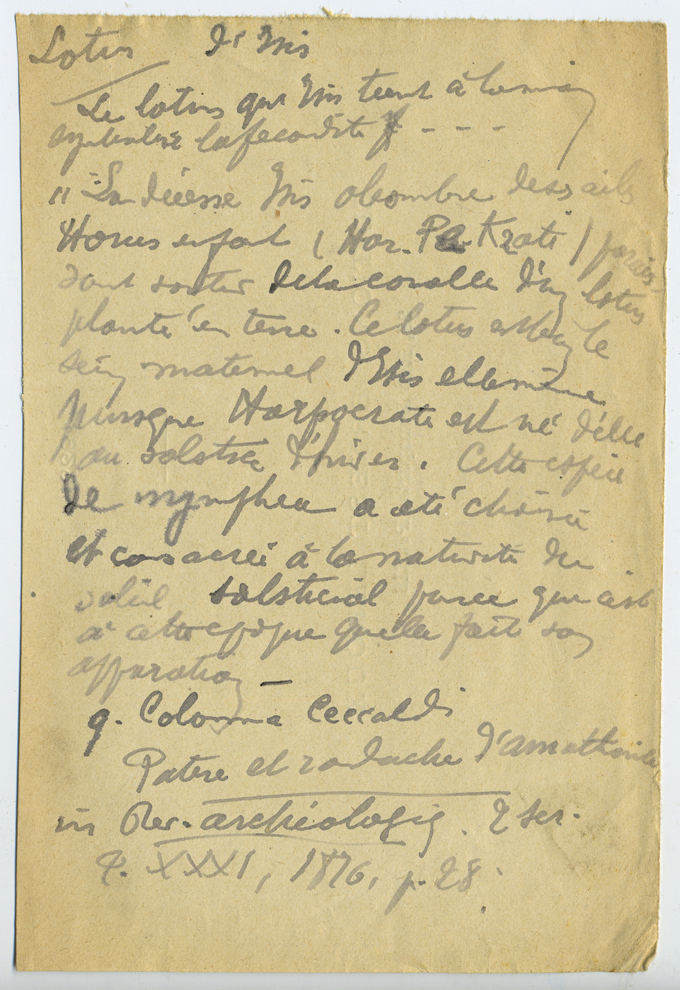 Lotus d'Isis
Le lotus que Isis tient à la main
symbolise la fecondité - - -
"La déesse Isis obombre de ses ailes
Horus enfant (Har. Pa-Krati) parais-
sant sortir de la corolle d'un lotus
planté en terre. Ce lotus est le
sein maternel d'Isis elle même
puisque Harpocrate est né d'elle
au solstice d'hiver. Cette espèce
de nymphea a été choisie
et consacrée à la nativité du
soleil solsticial parce que c'est
à cette époque qu'elle fait son
apparition —
g. Colonna Ceccaldi
Patere et rondache d'Amathonte
in Rev. archéologiq. 2 ser.
t. XXXI, 1876, p. 28.